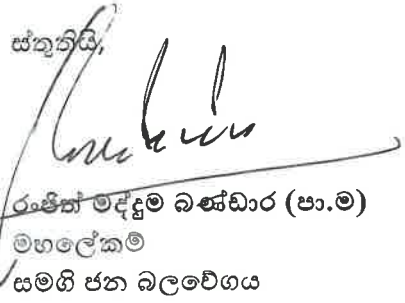 ස්තුතියි,
රංජිත් මද්දුම බණ්ඩාර (පා.ම)
මහලේකම්
සමගි ජන බලවේගය